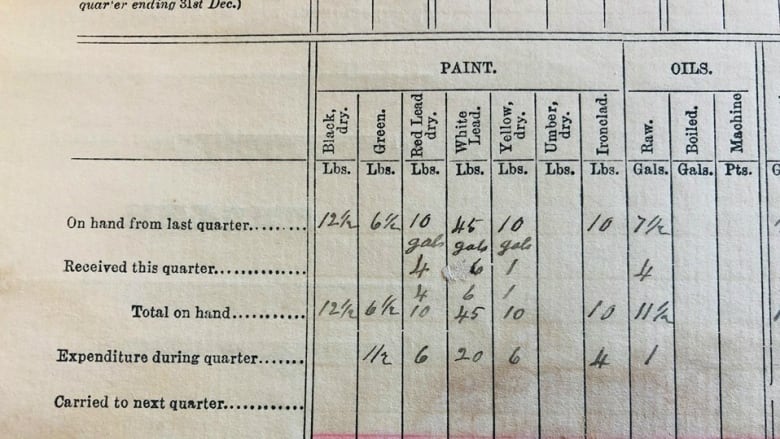 quarter ending 31st Dec.)
PAINT. OILS.
Black, dry. Green. Red Lead dry. White Lead. Yellow, dry. Umber, dry. Ironclad. Raw. Boiled. Machine
Lbs. Lbs. Lbs. Lbs. Lbs. Lbs. Lbs. Gals. Gals. Pts. G
On hand from last quarter......... 12½ 6½ 10 45 10 10 7½
gals gals gals
Received this quarter............. 4 6 1 4
4 6 1
Total on hand........... 12½ 6½ 10 45 10 10 11½
Expenditure during quarter....... 1½ 6 20 6 4 1
Carried to next quarter............